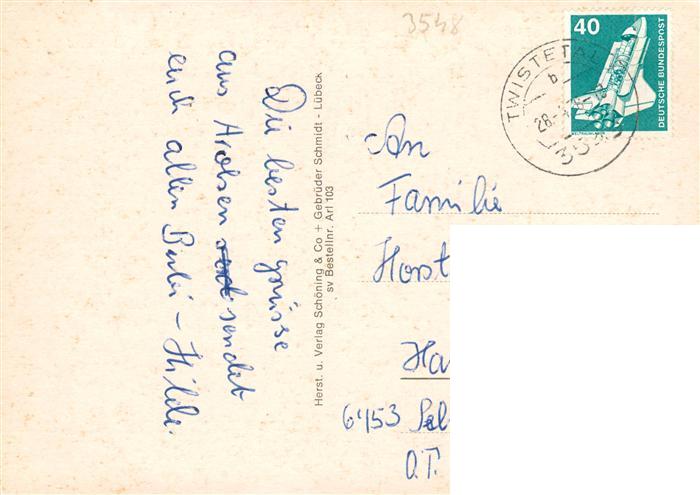 3548
40
DEUTSCHE BUNDESPOST
TWISTETAL
b
28.
Die besten grüsse
aus Arolsen sendet
euch allen
Hilde.
Herst. u. Verlag Schöning & Co + Gebrüder Schmidt - Lübeck
sv Bestellnr. Arl 103
An
Familie
Horst
Ha
6453 Sel
O.T.